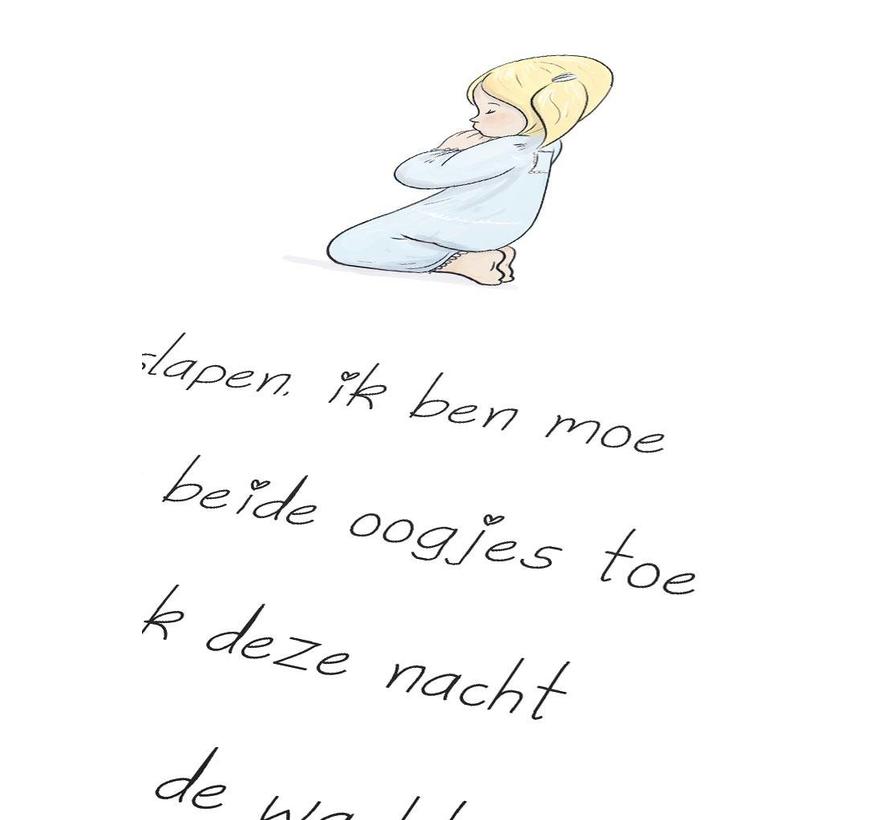 slapen, ik ben moe
beide oogjes toe
k deze nacht
de